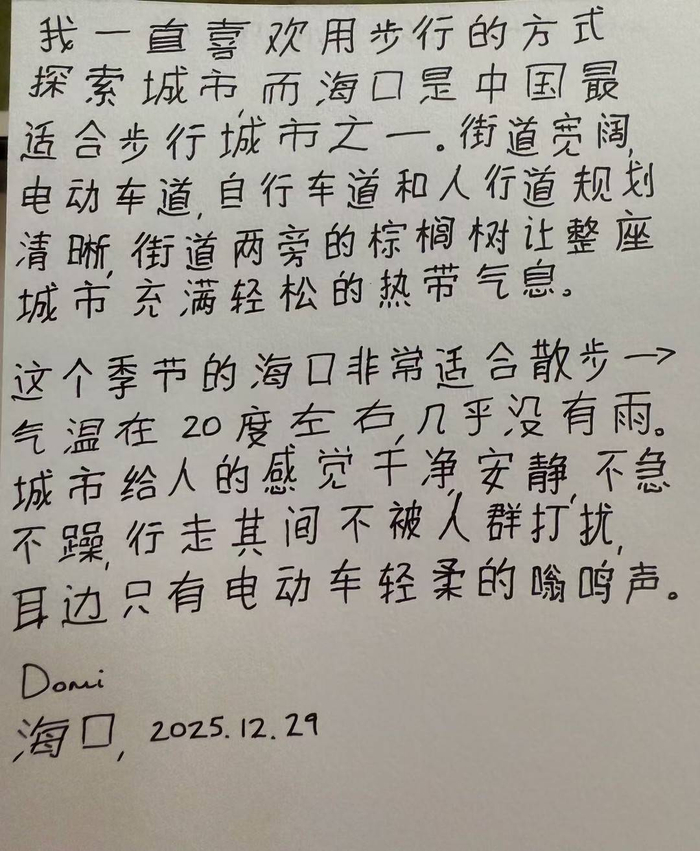 我一直喜欢用步行的方式
探索城市,而海口是中国最
适合步行城市之一。街道宽阔,
电动车道,自行车道和人行道规划
清晰,街道两旁的棕榈树让整座
城市充满轻松的热带气息。
这个季节的海口非常适合散步→
气温在20度左右,几乎没有雨。
城市给人的感觉干净,安静,不急
不躁,行走其间不被人群打扰,
耳边只有电动车轻柔的嗡鸣声。
Domi
海口, 2025.12.29